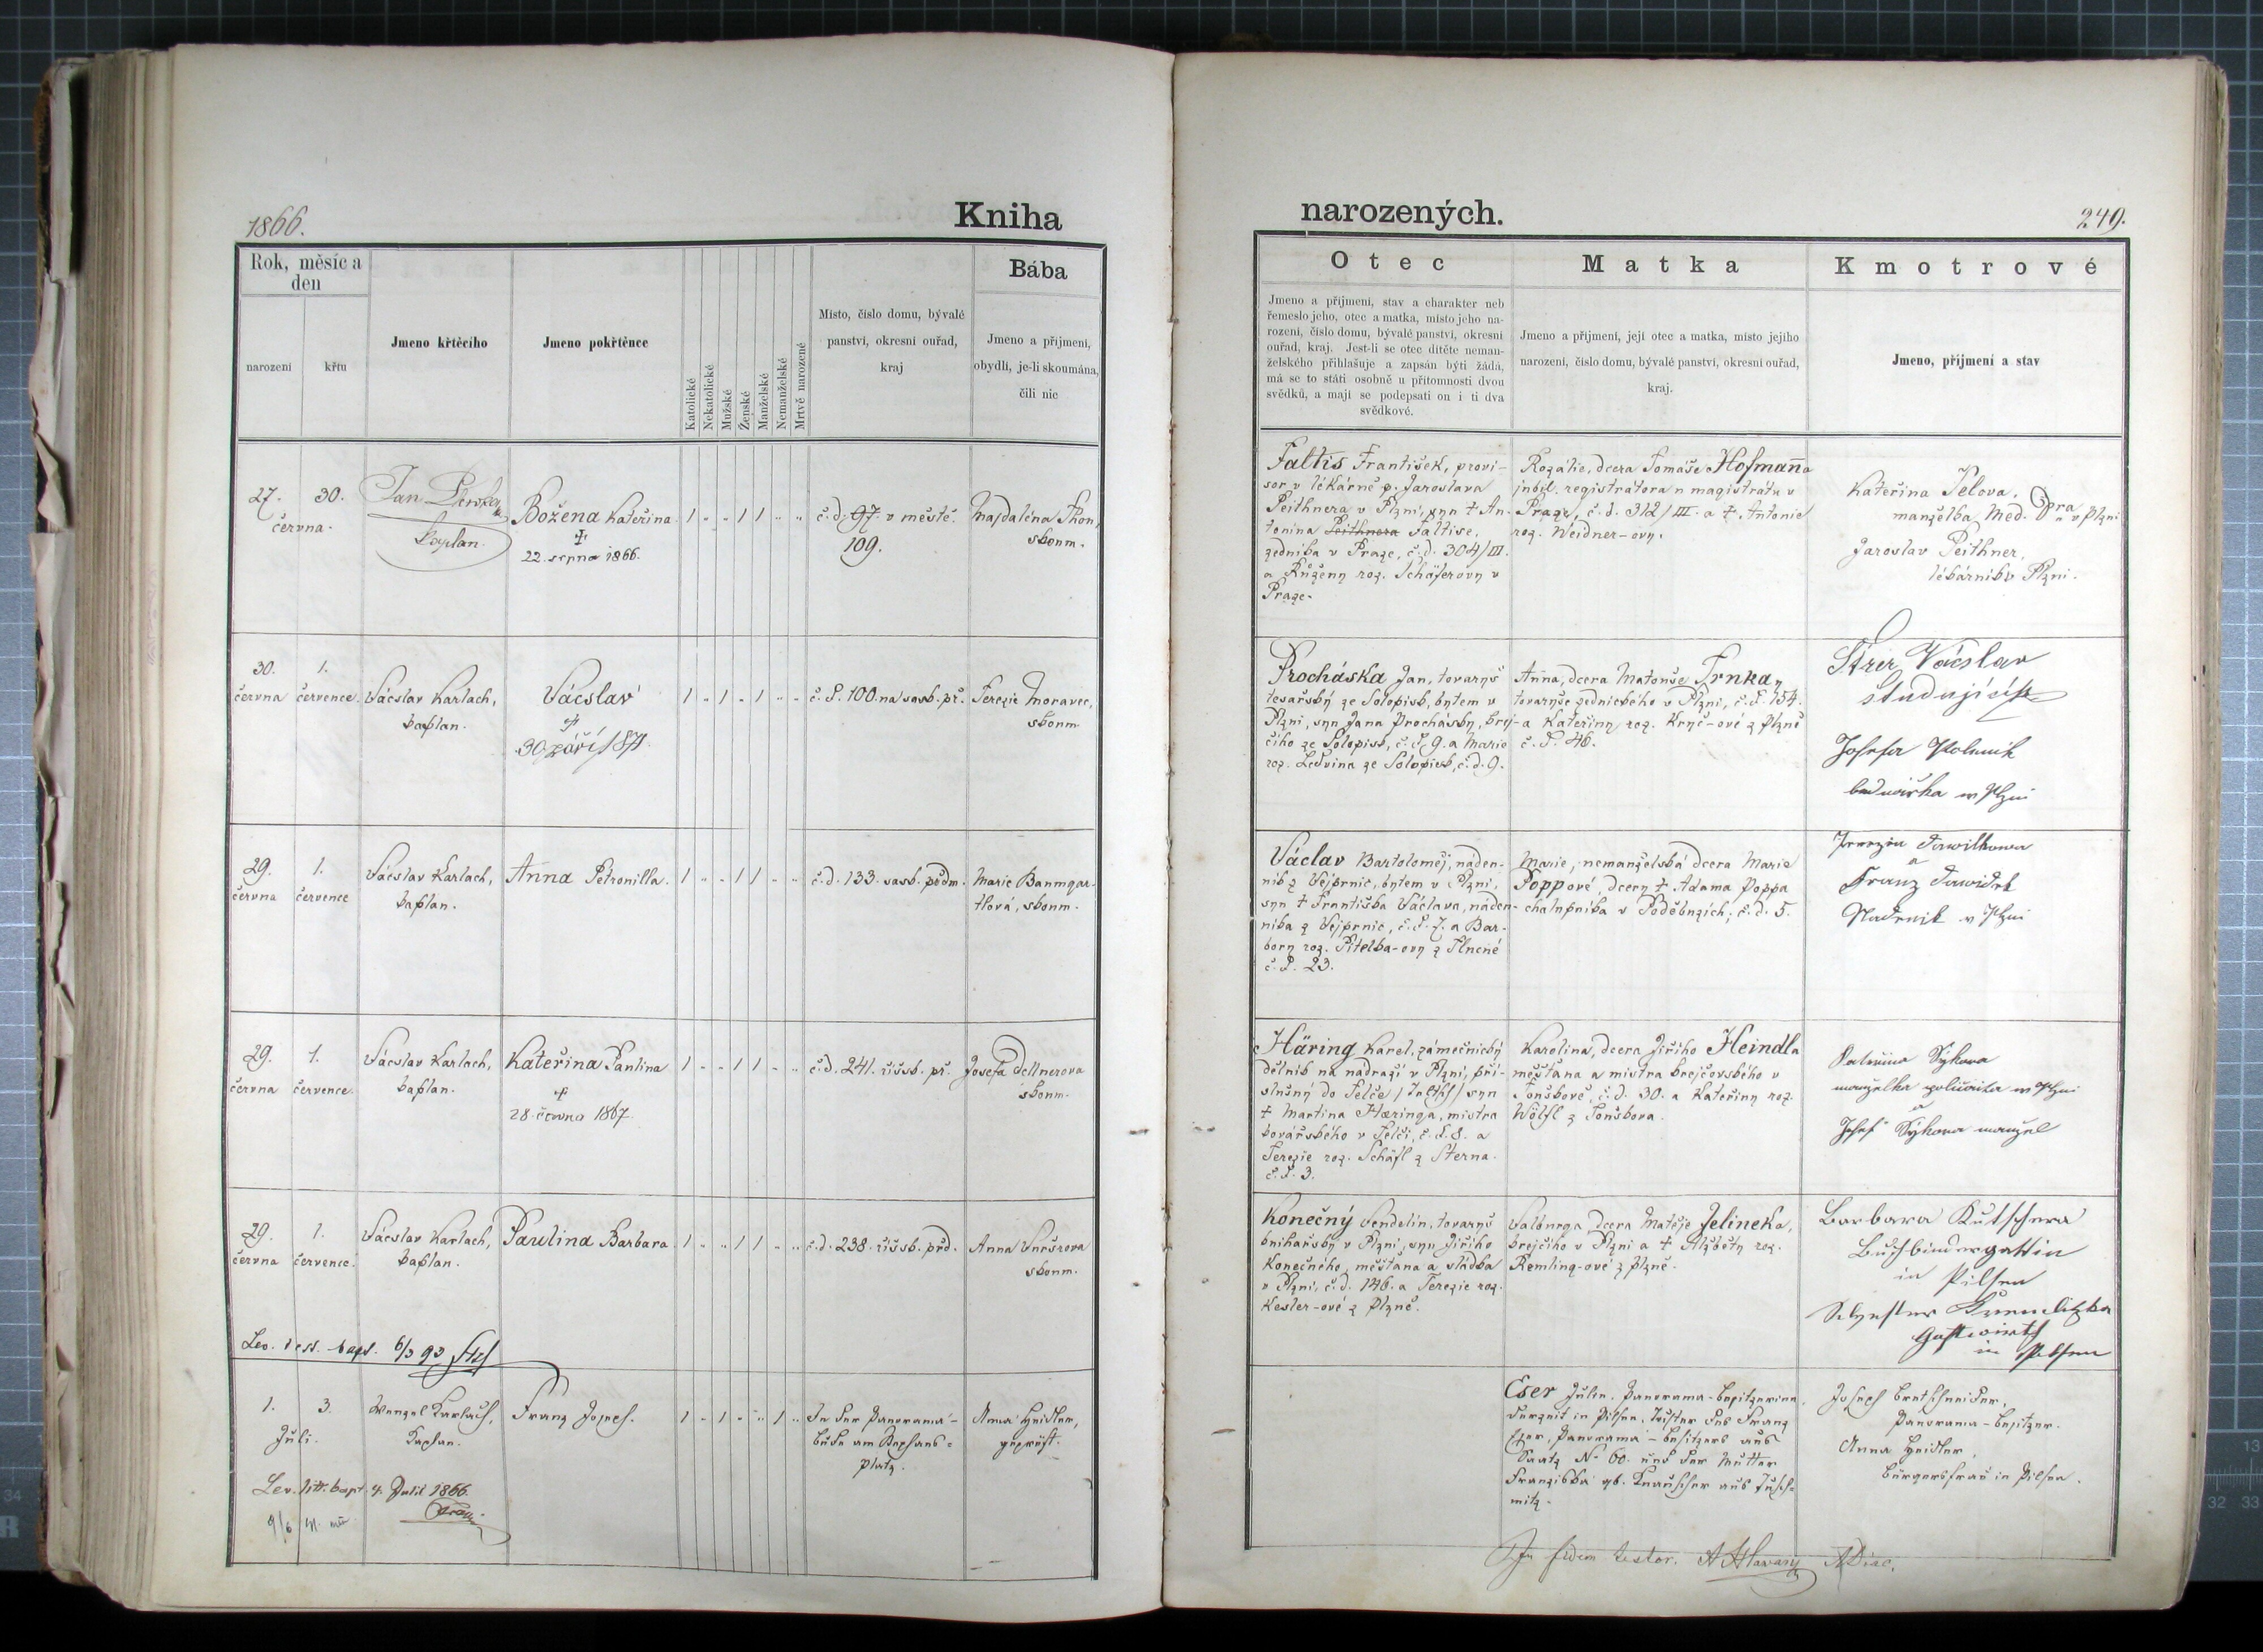 1866.
Kniha
Rok, měsíc a
den
narození
křtu
Jmeno křtěcího
Jmeno pokřtěnce
Katolické
Nekatolické
Mužské
Ženské
Manželské
Nemanželské
Mrtvě narozené
Místo, číslo domu, bývalé
panství, okresní ouřad,
kraj
Bába
Jmeno a příjmení,
obydlí, je-li skoumána,
čili nic
27. 30.
června.
Jan
kaplan.
Božena Kateřina.
†
22. srpna 1866.
č.d. 97. v městě.
109.
Majdaléna Thon,
skoum.
30. 1.
června července.
Vácslav Karlach,
kaplan.
Vácslav
†
30 září 1871.
č. d. 100. na sask. př.
Terezie Moravec,
skoum
29. 1.
června července
Vácslav Karlach,
kaplan.
Anna Petronilla.
č.d. 133. sask. předm.
Marie Baumgar-
tlová, skoum.
29. 1.
června července.
Vácslav Karlach,
kaplan.
Kateřina Paulina
†
28. června 1867.
č.d. 241. říšsk. př.
Josefa Dellnerova
skoum.
29. 1.
června července.
Vácslav Karlach,
kaplan.
Paulina Barbara
č.d. 238. říšsk. přd.
Anna
skoum.
6/3 93
1. 3.
Juli.
Wenzel Karlach,
Kaplan.
Franz Josef.
In der Panorama-
bude am
platz.
Anna Heidler,
geprüft.
Lev. litt. bapt. 4. Julii 1866.
narozených.
249.
Otec
Jmeno a příjmení, stav a charakter neb
řemeslo jeho, otec a matka, místo jeho na-
rození, číslo domu, bývalé panství, okresní
ouřad, kraj. Jest-li se otec dítěte neman-
želského přihlašuje a zapsán býti žádá,
má se to státi osobně u přítomnosti dvou
svědků, a mají se podepsati on i ti dva
svědkové.
Matka
Jmeno a příjmení, její otec a matka, místo jejího
narození, číslo domu, bývalé panství, okresní ouřad,
kraj.
Kmotrové
Jmeno, příjmení a stav
Faltis František, provi-
sor v lékárně p. Jaroslava
Peithnera v Plzni, syn † An-
tonína Peithnera Faltise,
zedníka v Praze, č.d. 304/III.
a Růženy roz. Schäferovy v
Praze.
Rozálie, dcera Tomáše Hofmanna
jubil. registrátora u magistrátu v
Praze, č.d. 312/III. a † Antonie
roz. Weidner-ovy.
Kateřina Pelova,
manželka Med. Dra v Plzni
Jaroslav Peithner,
lékárník v Plzni.
Procháska Jan, tovaryš
tesařský ze Solopisk, bytem v
Plzni, syn Jana Prochásky, krej-
čího ze Solopisk, č.d. 9. a Marie
roz. Ledvina ze Solopisk, č.d. 9.
Anna, dcera Matouše Trnka,
tovaryše zednického v Plzni, č.d. 154.
a Kateřiny roz. Kryč-ové z Plzně
č. d. 46.
Vácslav
studující
Josefa
v Plzni
Václav Bartoloměj, náden-
ník z Vejprnic, bytem v Plzni,
syn † Františka Václava, náden-
níka z Vejprnic, č. d. 7. a Bar-
bory roz. Pitelka-ovy z Tlucné
č. d. 23.
Marie, nemanželská dcera Marie
Poppové, dcery † Adama Poppa
chalupníka v Poděbuzích, č.d. 5.
a
Franz
v Plzni
Häring Karel, zámečnický
dělník na nádraží v Plzni, pří-
slušný do Telče syn
† Martina Haeringa, mistra
kovářského v Telči, č.d. 8. a
Terezie roz. Schäfl z Sterna
č.d. 3.
Karolina, dcera Jiřího Heindla
měšťana a mistra krejčovského v
Touškově, č.d. 30. a Kateřiny roz.
Wölfl z Touškova.
Kateřina Sýkora
manželka v Plzni
a
Josef Sýkora manžel
Konečný Vendelín, tovaryš
knihařský v Plzni, syn Jiřího
Konečného, měšťana a sládka
v Plzni, č.d. 146. a Terezie roz.
Kesler-ové z Plzně.
Valburga dcera Matěje Jelineka,
krejčího v Plzni a † Alžběty roz.
Remling-ové z Plzně.
Barbara Kutschera
Buchbindergattin
in Pilsen
Silvester
Gastwirth
in Pilsen
Eser Julie, Panorama-besitzerinn,
derzeit in Pilsen, Tochter des Franz
Eser, Panorama-besitzers aus
Saatz N. 60. und der Mutter
Franziska gb.
Josef Bretschneider,
Panorama-besitzer.
Anna Heidler,
Bürgersfrau in Pilsen.
In fidem testor.